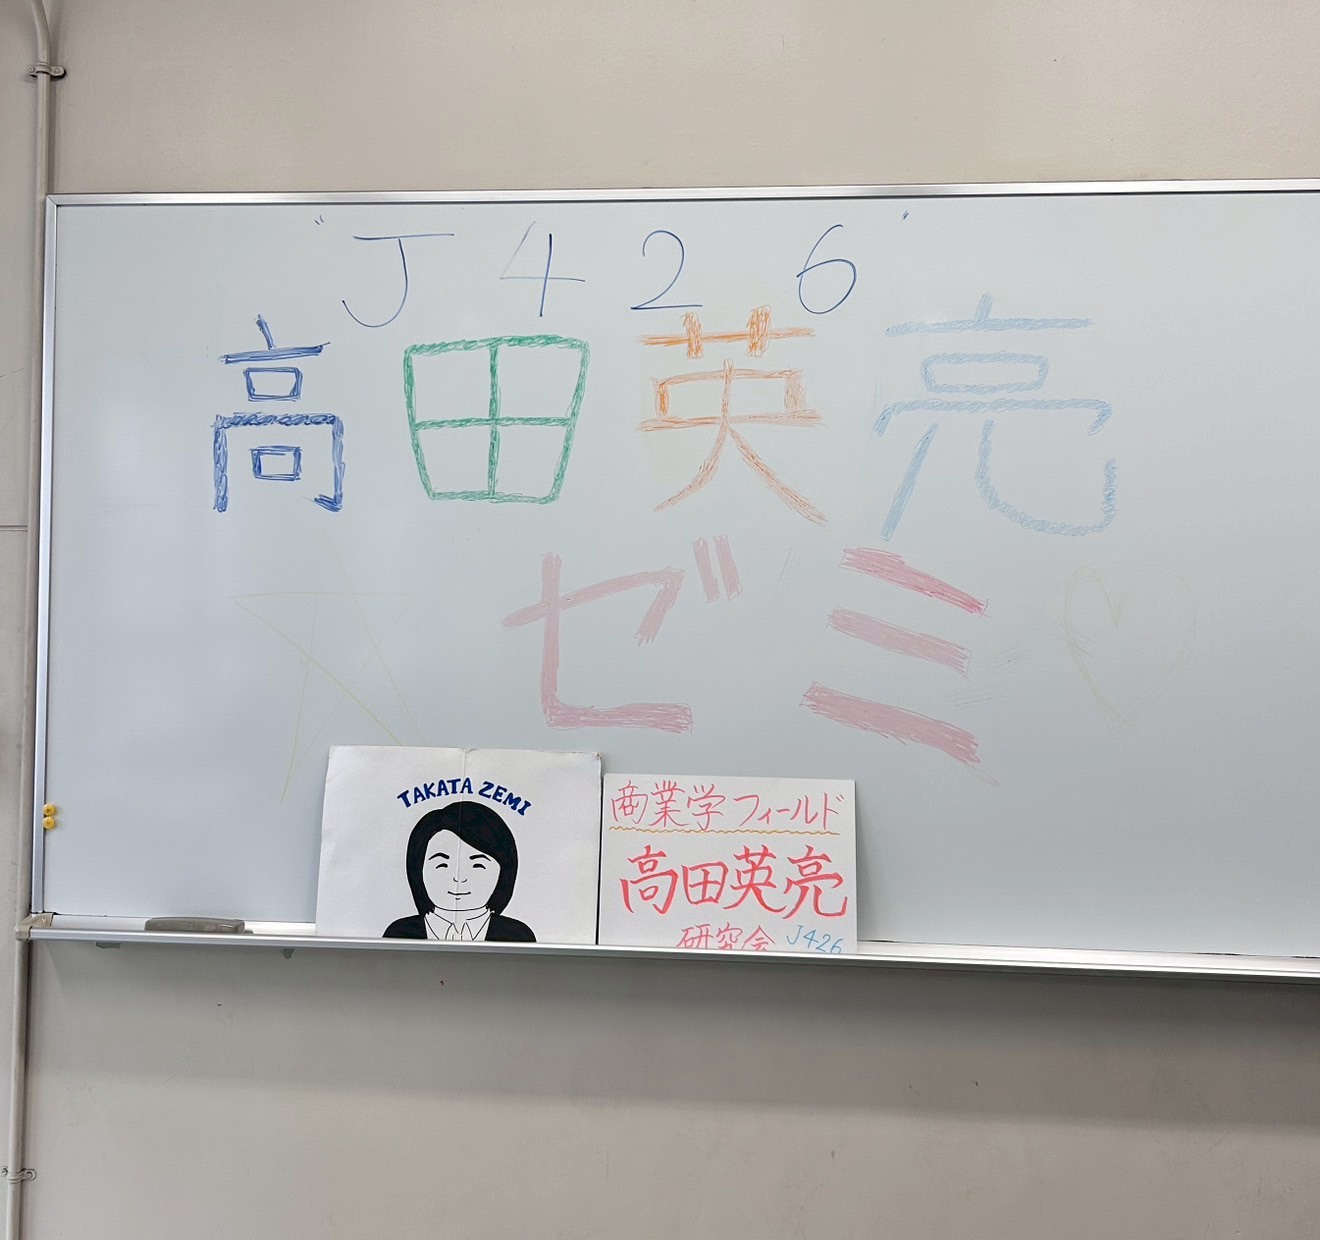 "J426"
高田英亮
ゼミ
TAKATA ZEMI
商業学フィールド
高田英亮
研究会 J426